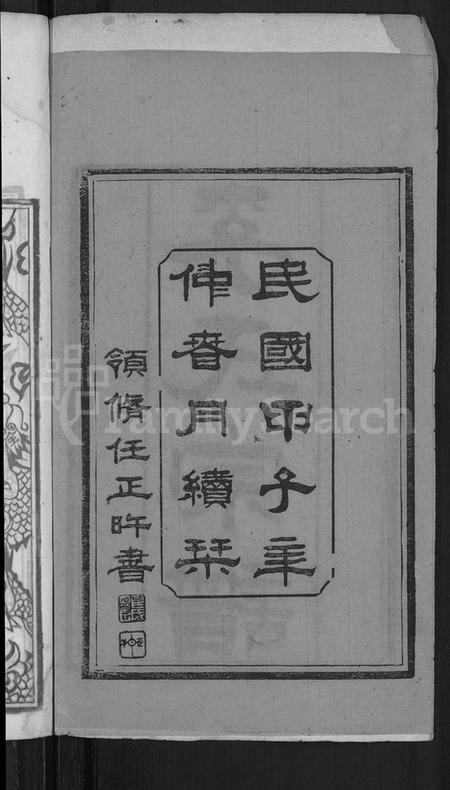 民國甲子年
仲春月續栞
領脩任正旿書
FamilySearch